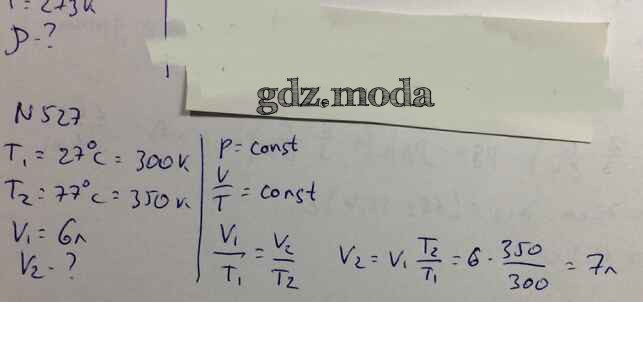 T = 273 K
ρ - ?
gdz.moda
N 527
T₁ = 27°C = 300 K
T₂ = 77°C = 350 K
V₁ = 6 л
V₂ - ?
P = const
V/T = const
V₁/T₁ = V₂/T₂
V₂ = V₁ T₂/T₁ = 6 · 350/300 = 7 л